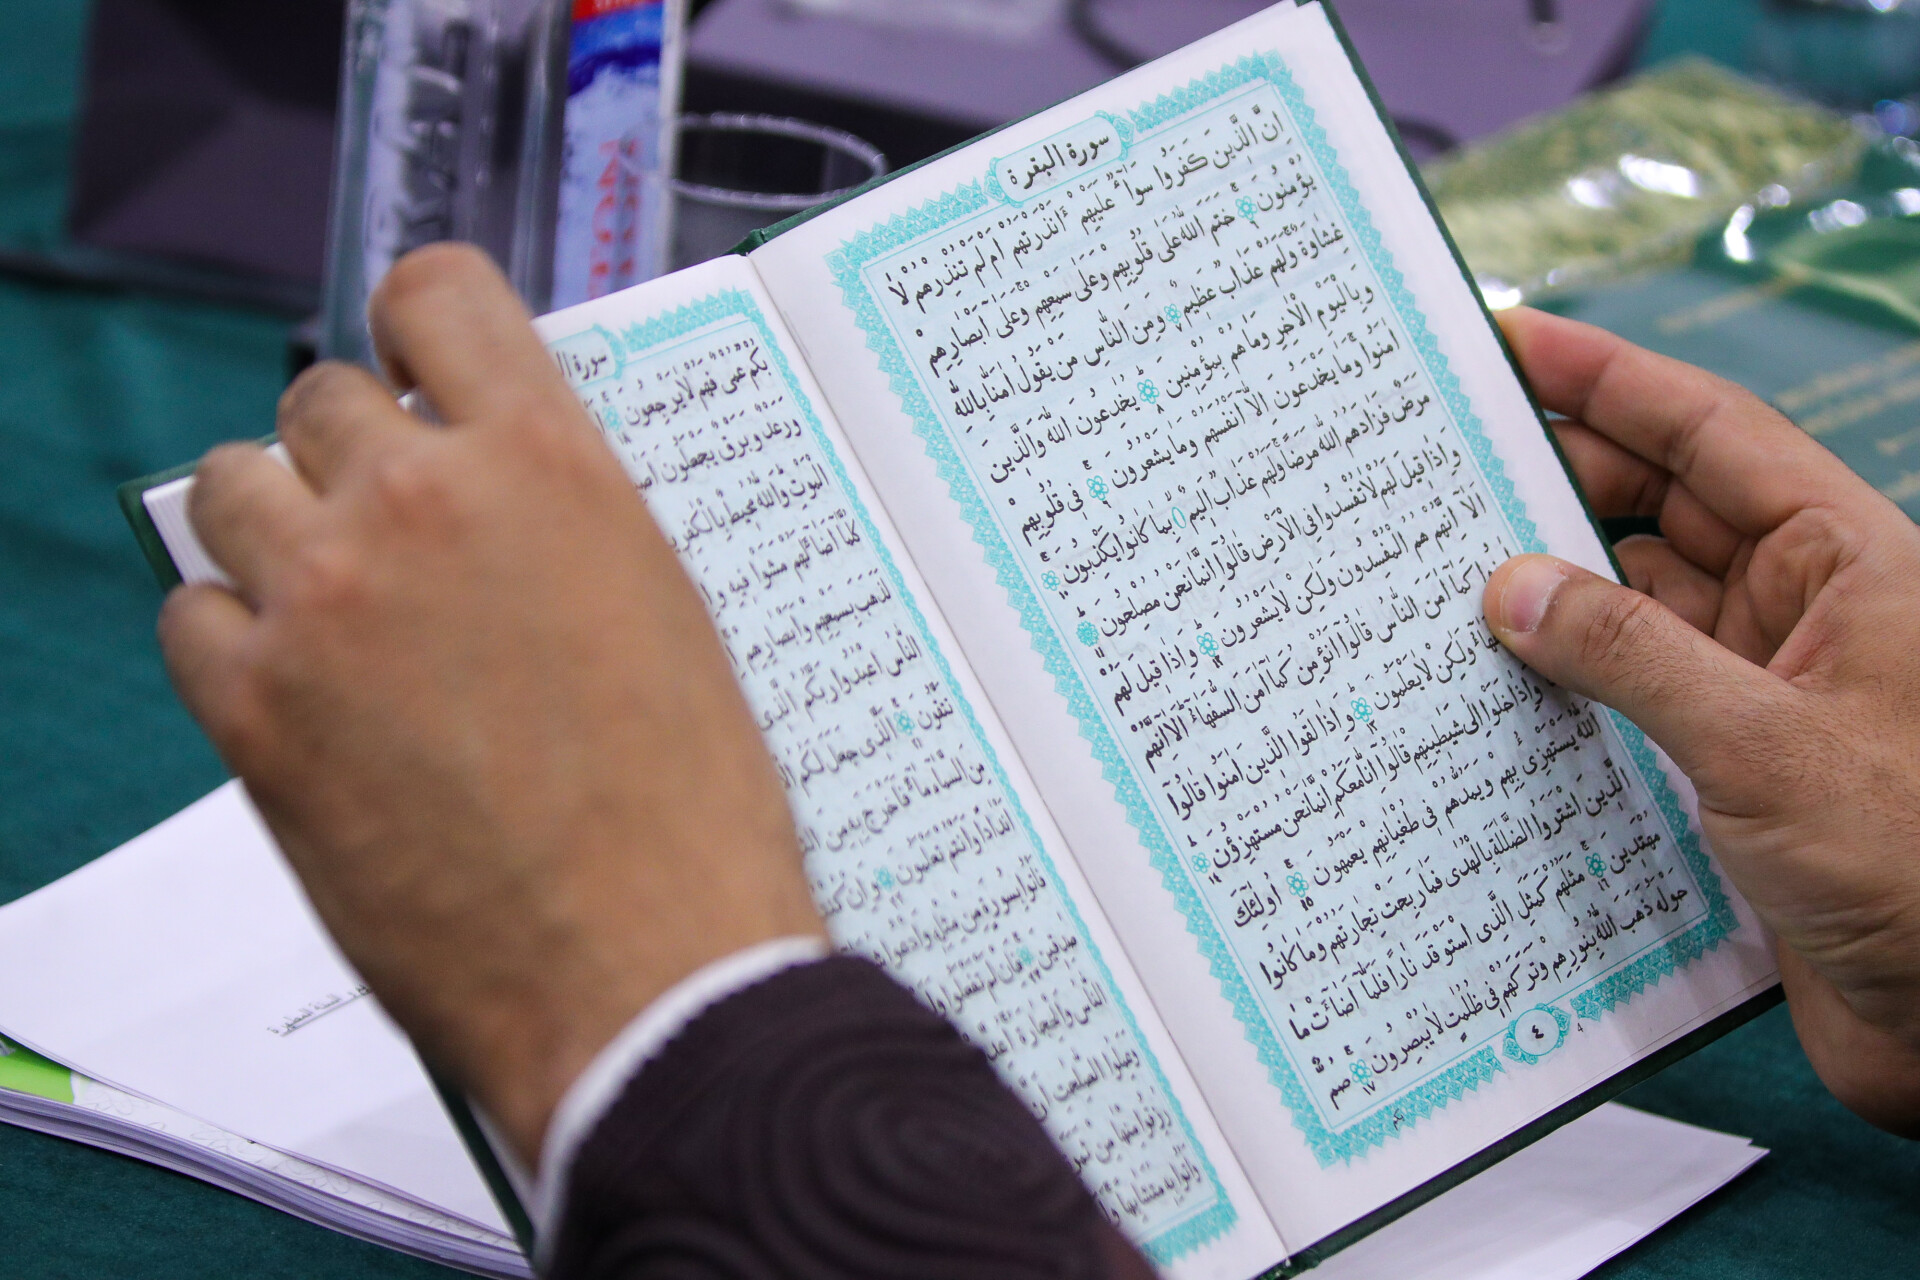 سورة البقرة
انَّ الَّذينَ كَفَرُوا سَوَاءٌ عَلَيْهِمْ ءَاَنْذَرْتَهُمْ اَمْ لَمْ تُنْذِرْهُمْ لَا
يُؤْمِنُونَ ٦ خَتَمَ اللّٰهُ عَلٰى قُلُوبِهِمْ وَعَلٰى سَمْعِهِمْ وَعَلٰى اَبْصَارِهِمْ
غِشَاوَةٌ وَلَهُمْ عَذَابٌ عَظيمٌ ٧ وَمِنَ النَّاسِ مَنْ يَقُولُ اٰمَنَّا بِاللّٰهِ
وَبِالْيَوْمِ الْاٰخِرِ وَمَا هُمْ بِمُؤْمِنينَ ٨ يُخَادِعُونَ اللّٰهَ وَالَّذينَ
اٰمَنُوا وَمَا يَخْدَعُونَ اِلَّا اَنْفُسَهُمْ وَمَا يَشْعُرُونَ ٩ فى قُلُوبِهِمْ
مَرَضٌ فَزَادَهُمُ اللّٰهُ مَرَضًا وَلَهُمْ عَذَابٌ اَليمٌ بِمَا كَانُوا يَكْذِبُونَ ١٠
وَاِذَا قيلَ لَهُمْ لَا تُفْسِدُوا فِى الْاَرْضِ قَالُوا اِنَّمَا نَحْنُ مُصْلِحُونَ ١١
اَلَا اِنَّهُمْ هُمُ الْمُفْسِدُونَ وَلٰكِنْ لَا يَشْعُرُونَ ١٢ وَاِذَا قيلَ لَهُمْ
كَمَا اٰمَنَ النَّاسُ قَالُوا اَنُؤْمِنُ كَمَا اٰمَنَ السُّفَهَاءُ اَلَا اِنَّهُمْ
وَلٰكِنْ لَا يَعْلَمُونَ ١٣ وَاِذَا لَقُوا الَّذينَ اٰمَنُوا قَالُوا
وَاِذَا خَلَوْا اِلٰى شَيَاطينِهِمْ قَالُوا اِنَّا مَعَكُمْ اِنَّمَا نَحْنُ مُسْتَهْزِؤُنَ ١٤
اَللّٰهُ يَسْتَهْزِئُ بِهِمْ وَيَمُدُّهُمْ فى طُغْيَانِهِمْ يَعْمَهُونَ ١٥ اُولٰئِكَ
الَّذينَ اشْتَرَوُا الضَّلَالَةَ بِالْهُدٰى فَمَا رَبِحَتْ تِجَارَتُهُمْ وَمَا كَانُوا
مُهْتَدينَ ١٦ مَثَلُهُمْ كَمَثَلِ الَّذِى اسْتَوْقَدَ نَارًا فَلَمَّا اَضَاءَتْ مَا
حَوْلَهُ ذَهَبَ اللّٰهُ بِنُورِهِمْ وَتَرَكَهُمْ فى ظُلُمَاتٍ لَا يُبْصِرُونَ ١٧ صُمٌّ
٤
بكم
سورة
بُكْمٌ عُمْىٌ فَهُمْ لَا يَرْجِعُونَ ١٨
وَرَعْدٌ وَبَرْقٌ يَجْعَلُونَ
الْمَوْتِ وَاللّٰهُ مُحيطٌ بِالْكَافِرينَ
كُلَّمَا اَضَاءَ لَهُمْ مَشَوْا فيهِ
لَذَهَبَ بِسَمْعِهِمْ وَاَبْصَارِهِمْ
النَّاسُ اعْبُدُوا رَبَّكُمُ الَّذى
تَتَّقُونَ ٢١ اَلَّذى جَعَلَ لَكُمُ
مِنَ السَّمَاءِ مَاءً فَاَخْرَجَ بِهِ مِنَ
اَنْدَادًا وَاَنْتُمْ تَعْلَمُونَ ٢٢ وَاِنْ كُنْتُمْ
فَأْتُوا بِسُورَةٍ مِنْ مِثْلِهِ وَادْعُوا
صَادِقينَ ٢٣ فَاِنْ لَمْ تَفْعَلُوا
النَّاسُ وَالْحِجَارَةُ
وَعَمِلُوا الصَّالِحَاتِ اَنَّ
رُزِقُوا مِنْهَا مِنْ
وَاُتُوا بِهِ مُتَشَابِهًا